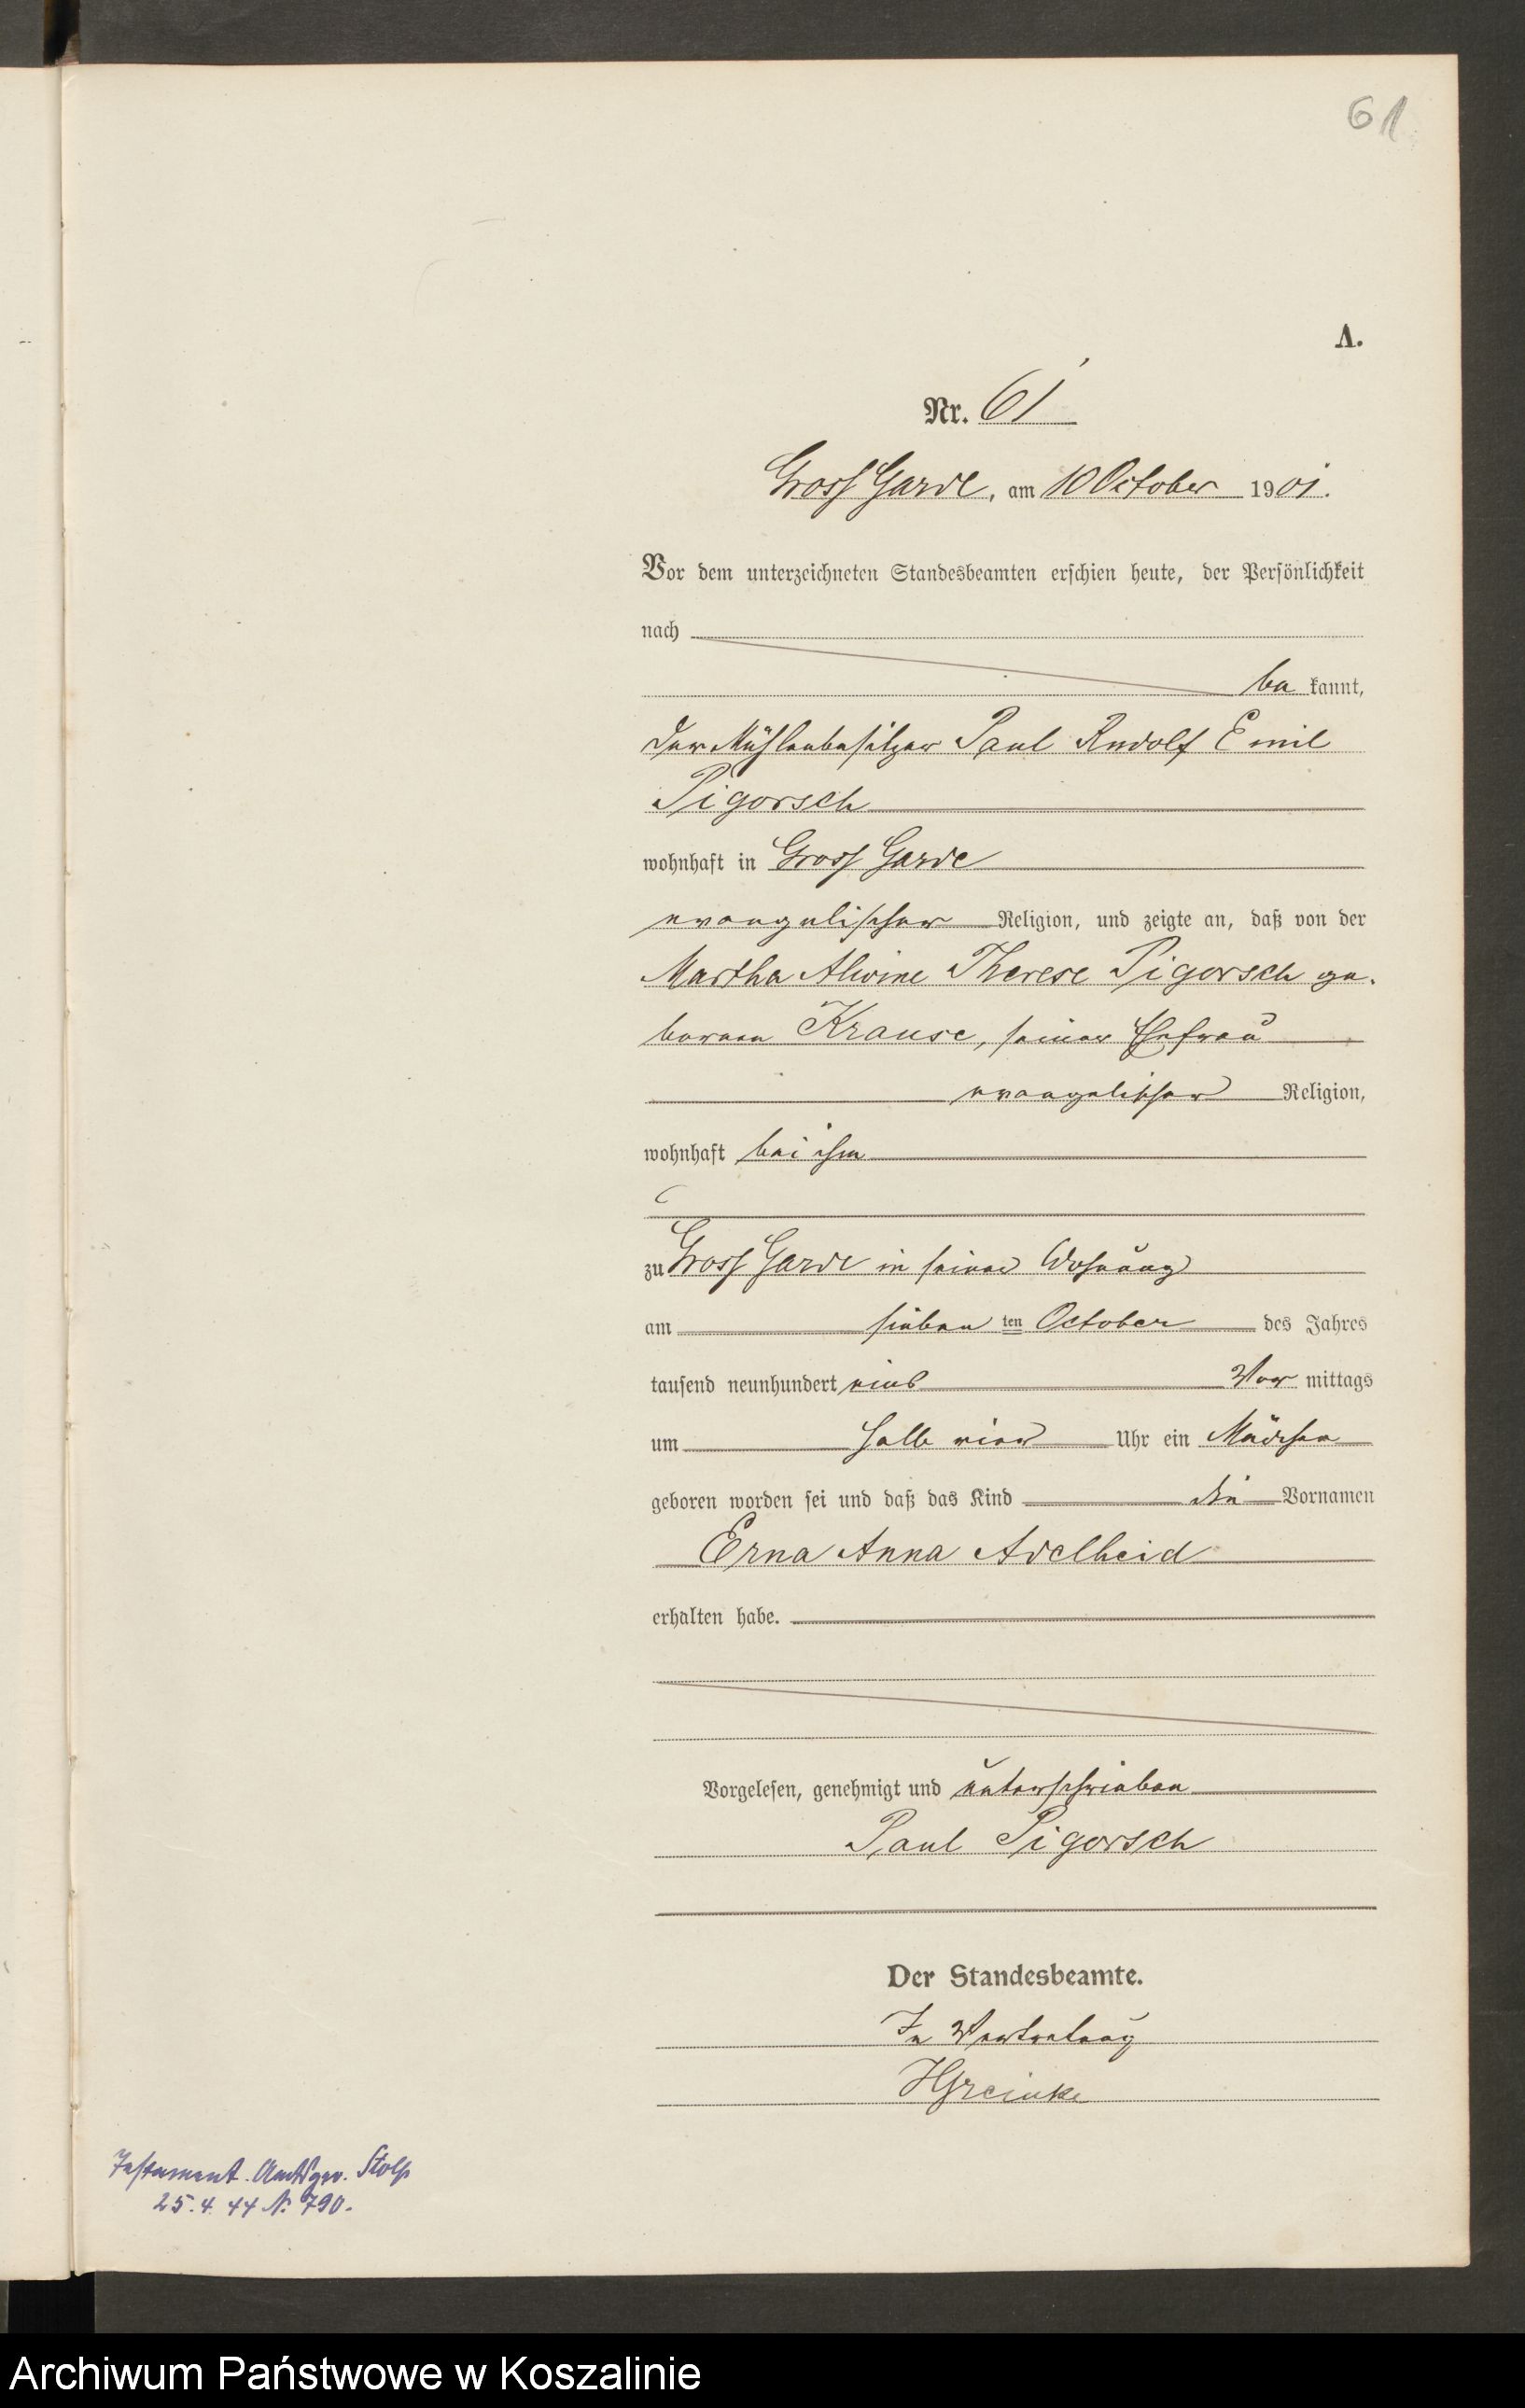 61
A.
Nr. 61
Gross Garde, am 10 October 1901.
Vor dem unterzeichneten Standesbeamten erschien heute, der Persönlichkeit
nach
be kannt,
der Mühlenbesitzer Paul Rudolf Emil
Pigorsch
wohnhaft in Gross Garde
evangelischer Religion, und zeigte an, daß von der
Martha Alwine Therese Pigorsch ge-
borenen Krause, seiner Ehefrau
evangelischer Religion,
wohnhaft bei ihm
zu Gross Garde in seiner Wohnung
am sieben ten October des Jahres
tausend neunhundert eins Vor mittags
um halb vier Uhr ein Mädchen
geboren worden sei und daß das Kind die Vornamen
Erna Anna Adelheid
erhalten habe.
Vorgelesen, genehmigt und unterschrieben
Paul Pigorsch
Der Standesbeamte.
In Vertretung
HGreinke
Testament. Amtsger. Stolp
25.4.44 N: 790.
Archiwum Państwowe w Koszalinie